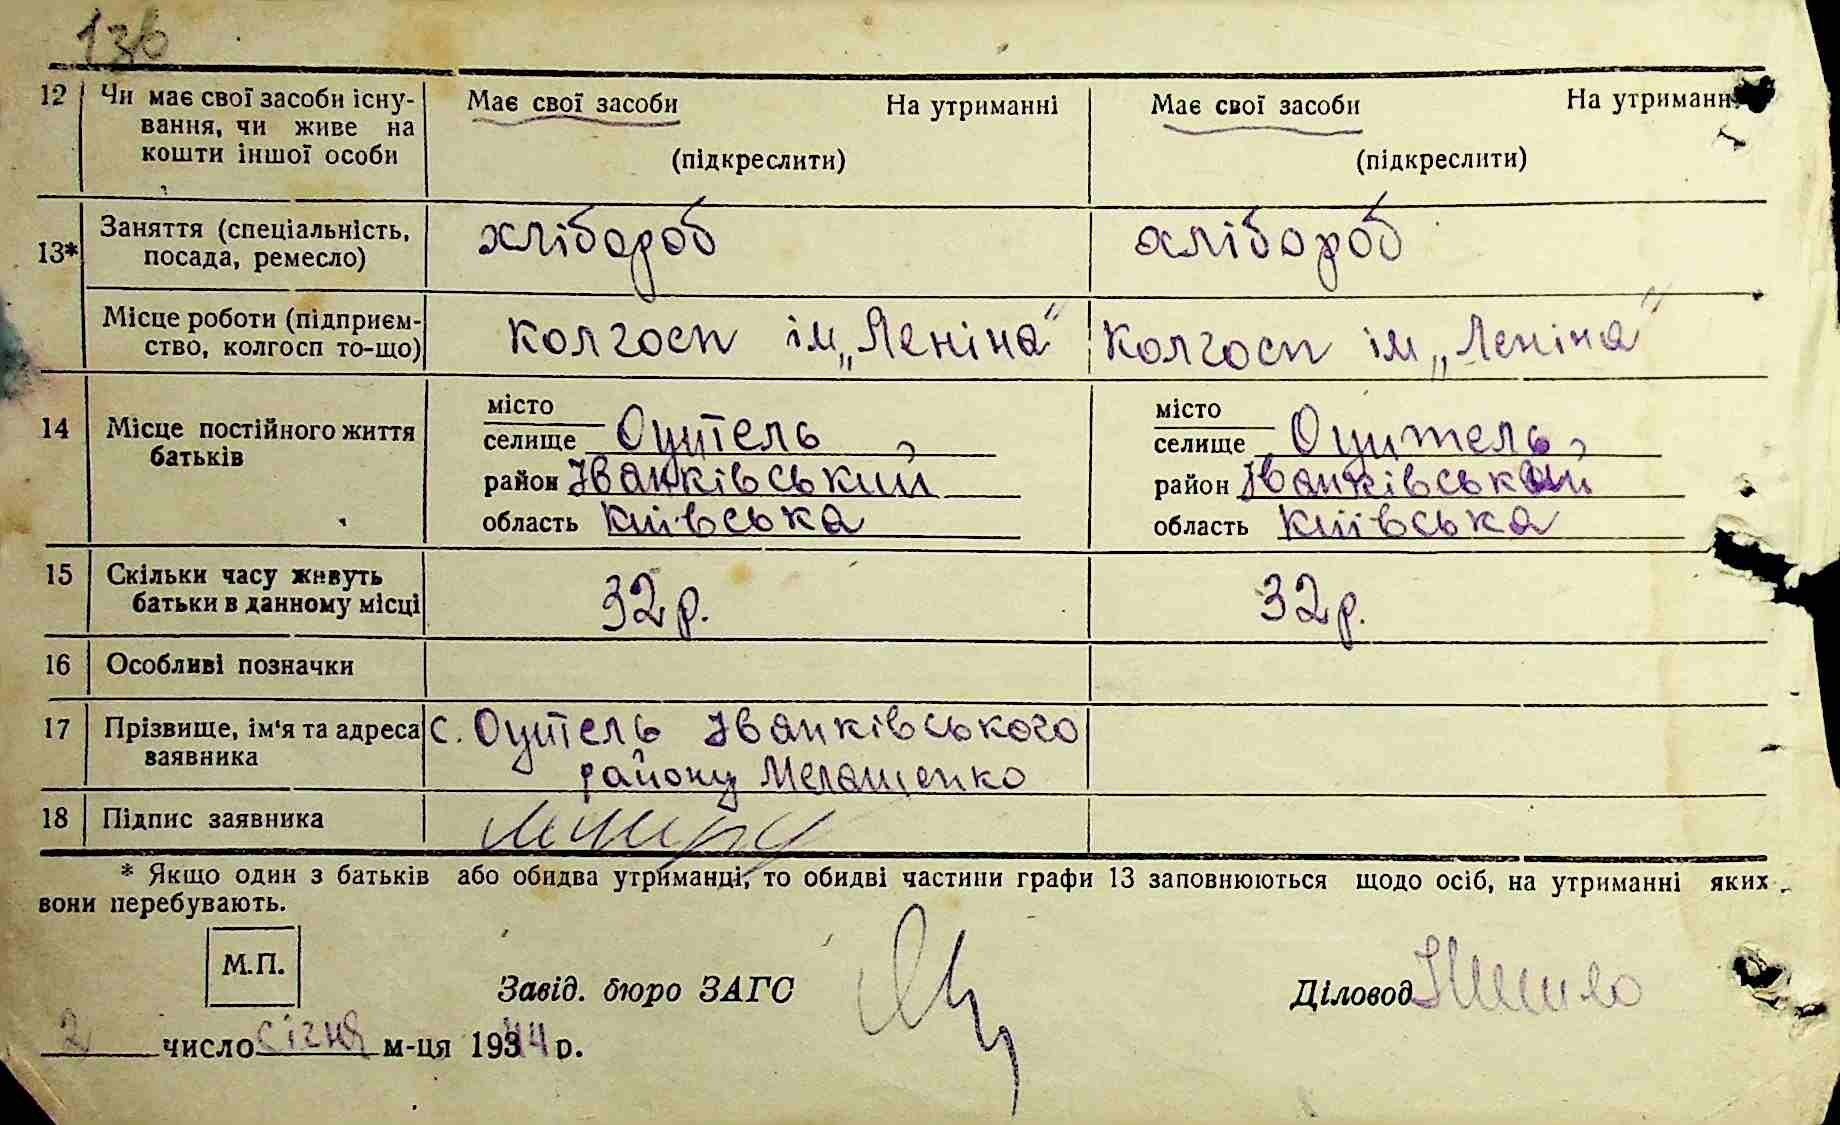 136
12 Чи має свої засоби існу- Має свої засоби На утриманні Має свої засоби На утриманн
вання, чи живе на
кошти іншої особи (підкреслити) (підкреслити)
Заняття (спеціальність, хлібороб хлібороб
13* посада, ремесло)
Місце роботи (підприєм- колгосп ім „Леніна" колгосп ім „Леніна"
ство, колгосп то-що)
місто місто
14 Місце постійного життя селище Оцитель, селище Оцитель,
батьків район Іванківський район Іванківський
область київська область київська
15 Скільки часу живуть 32 р. 32 р.
батьки в данному місці
16 Особливі позначки
17 Прізвище, ім'я та адреса с. Оцитель Іванківського
заявника району Мелащенко
18 Підпис заявника
* Якщо один з батьків або обидва утриманці, то обидві частини графи 13 заповнюються щодо осіб, на утриманні яких
вони перебувають.
М.П.
Завід. бюро ЗАГС Діловод
2 число січня м-ця 1944 р.